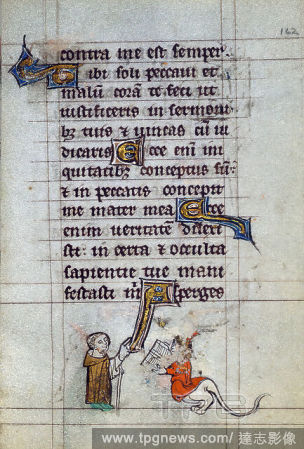 162
contra me est semper
Tibi soli peccavi et
malū corā te feci ut
iustificeris in sermoni
bꝫ tuis ⁊ vincas cū iu
dicaris Ecce enī in
iquitatibꝫ conceptus sū:
⁊ in peccatis concepit
me mater mea Ecce
enim veritatē dilexi
sti: in certa ⁊ occulta
sapientie tue mani
festasti m Asperges
www.tpgnews.com/ 達志影像